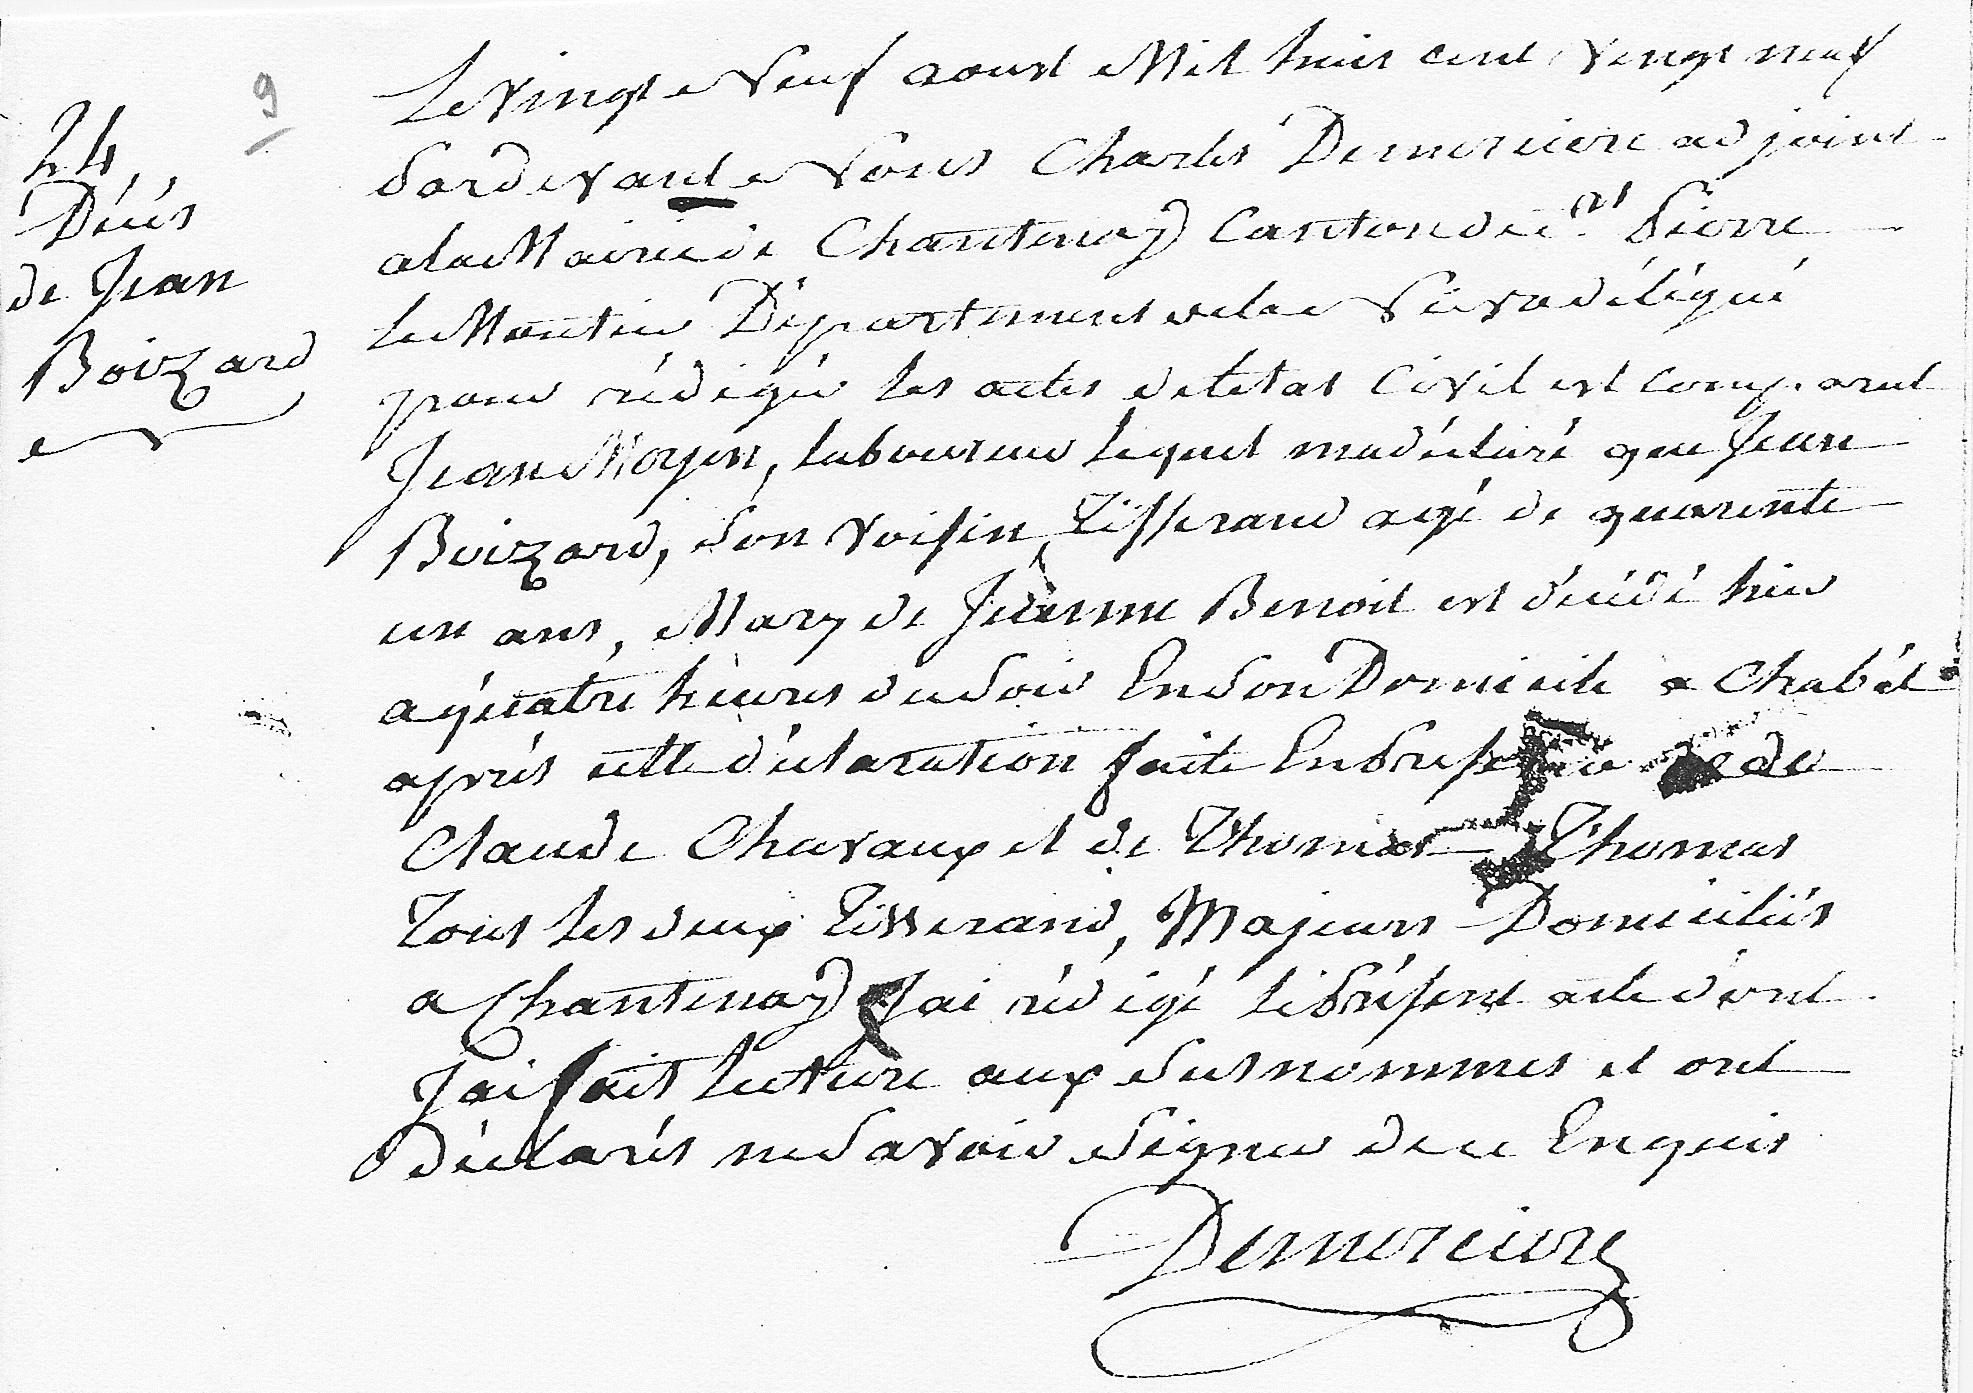 9
24
Décés
de Jean
Boizard
Le vingt Neuf aoust Mil huit cent vingt neuf
Pardevant Nous Charles Demerciere adjoint
a la Mairie de Chantenay Canton de St Pierre
le Moutier Département de la Nievre délégué
pour rédiger les actes de letat Civil est comparut
Jean Moyen, laboureur lequel ma déclaré que Jean
Boizard, Son Voisin, Tisserand agé de quarente
un ans, Mary de Jeanne Benoit est décédé hier
a quatre heures du Soir En Son Domicile a Chabét
aprés cette déclaration faite En Presence de
Claude Chavaux et de Thomas Thomas
Tous les deux Tisserand, Majeurs Domiciliés
a Chantenay Jai rédigé le Présent acte dont
Jai fait lecture aux Susnommes et ont
Déclarés ne Savoir Signer de ce Enquis
Demerciere